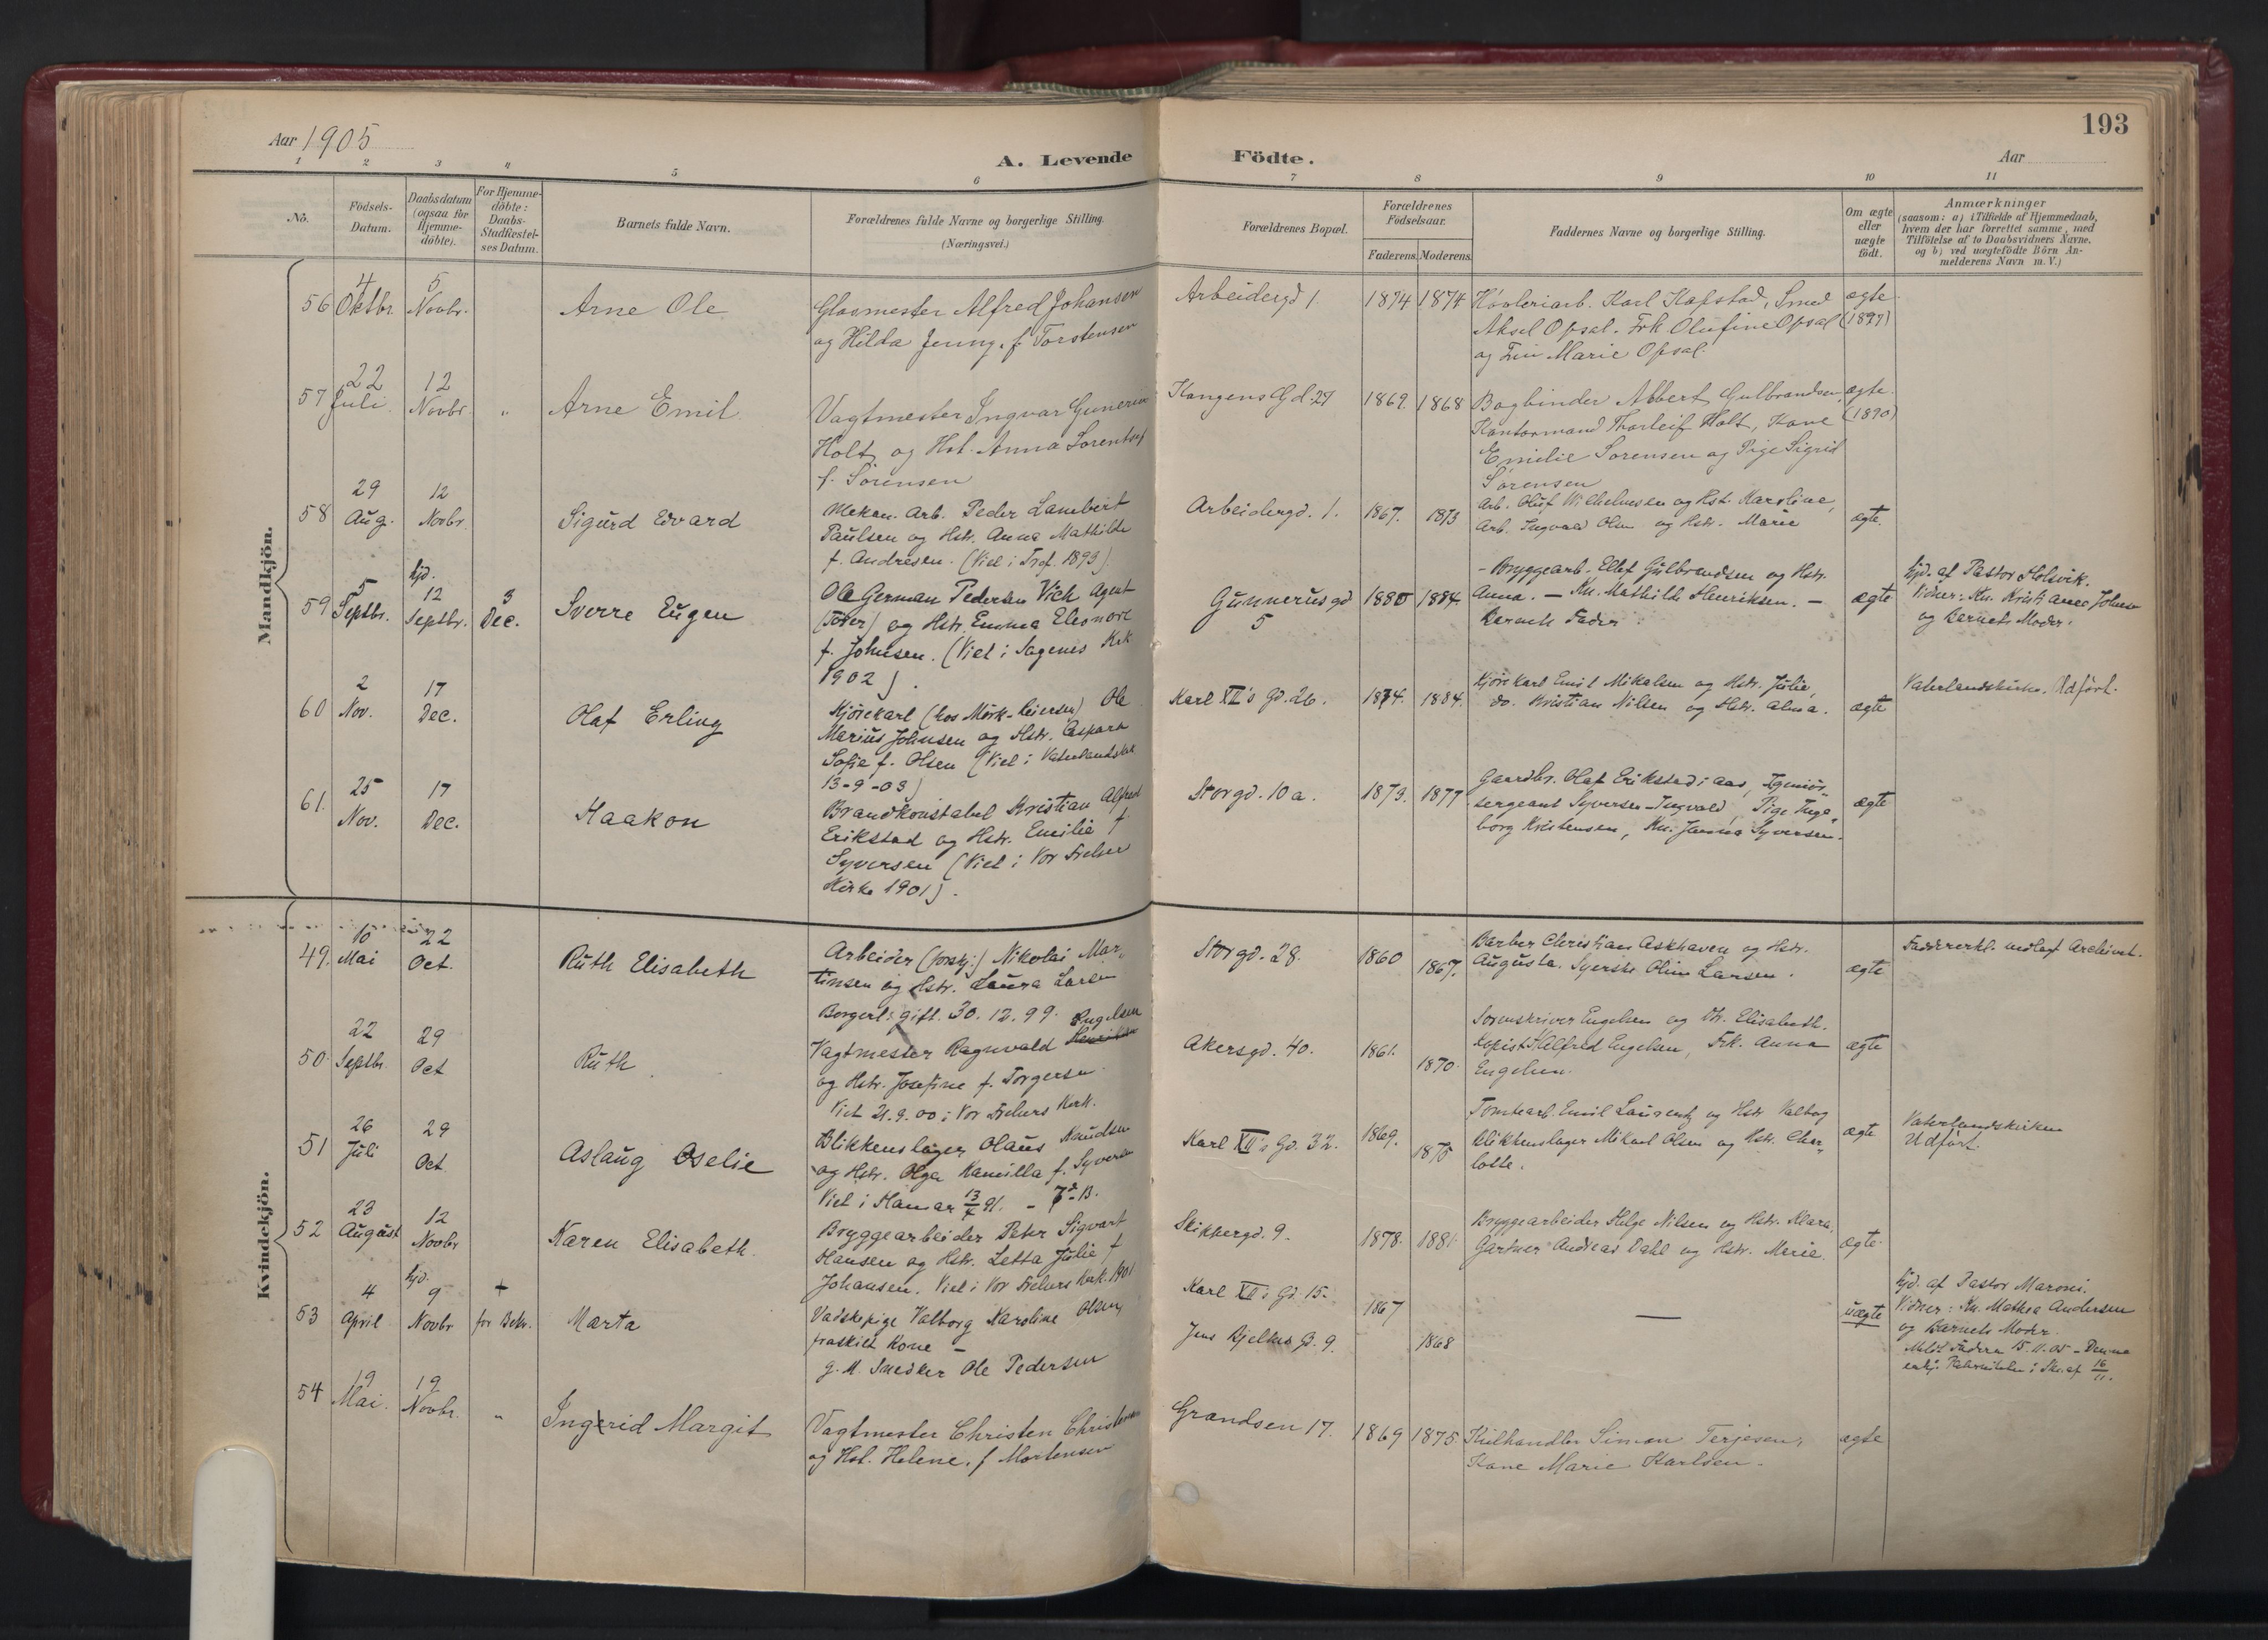 193
Aar 1905
A. Levende Födte.
Aar
1 2 3 4 5 6 7 8 9 10 11
No.
Födsels-Datum.
Daabsdatum (ogsaa for Hjemme-döbte).
For Hjemme-döbte: Daabs-Stadfæstel-ses Datum.
Barnets fulde Navn.
Forældrenes fulde Navne og borgerlige Stilling.
(Næringsvei.)
Forældrenes Bopæl.
Forældrenes Födselsaar.
Faderens. Moderens.
Faddernes Navne og borgerlige Stilling.
Om ægte eller uægte födt.
Anmærkninger
(saasom: a) i Tilfælde af Hjemmedaab, hvem der har forrettet samme, med Tilföielse af to Daabsvidners Navne, og b) ved uægtefödte Börn An-melderens Navn m. V.)
Mandkjön.
56 4 Oktbr. 5 Novbr. Arne Ole
Glasmester Alfred Johansen
og Hilda Jenny, f. Torstensen
Arbeidergd 1. 1874 1874
Høvleriarb. Karl Kapstad, Smed
Aksel Opsal. Frk Olufine Opsal
og Fru Marie Opsal.
ægte
(1897)
57 22 Juli 12 Novbr. " Arne Emil
Vagtmester Ingvar Gunerius
Holt og Hst. Anna Lorentse
f. Sørensen
Kongens Gd. 27 1869. 1868
Bogbinder Albert Gulbrandsen,
Kontormand Thorleif Holt, Kone
Emilie Sorensen og Pige Sigrid
Sørensen
ægte
(1890)
58 29 Aug. 12 Novbr. Sigurd Edvard
Mekan. Arb. Peder Lambert
Paulsen og Hstr. Anna Mathilde
f. Andresen. (Viet i Tref. 1893).
Arbeidergd. 1. 1867. 1873
Arb. Oluf Wilhelmsen og Hst. Karoline,
Arb. Ingvald Olsen og Hstr. Marie
ægte.
59 5 Septbr. hjd. 12 Septbr. 3 Dec. Sverre Eugen
Ole German Pedersen Vich Agent
og Hstr. Emma Eleonore
f. Johnsen. (Viet i Sagenes Kirk
1902).
Gunnerusgd 5 1880 1884.
- Bryggearb. Ellef Gulbrandsen og Hstr.
Anna. – Kn. Mathilde Henriksen. –
Barnets Fader.
ægte
hjd. af Pastor Holsvik.
Vidner: Kn. Kristiane Johnsen
og Barnets Moder.
60 2 Nov. 17 Dec. Olaf Erling
Kjørekarl (hos Mørk-Reiersen) Ole
Marius Johnsen og Hstr. Caspara
Sofie f. Olsen (Viet i Vaterlandskirk
13-9-03)
Karl XII's Gd. 26. 1874. 1884.
Kjørekarl Emil Mikalsen og Hstr. Julie,
do. Kristian Nilsen og Hstr. Alma.
ægte
Vaterlandskirke. Udført.
61. 25 Nov. 17 Dec. Haakon
Brandkonstabel Kristian Alfred
Erikstad og Hstr. Emilie f.
Syversen (Viet i Vor Frelser
Kirke 1901).
Storgd. 10 a. 1873. 1877
Gaardbr. Olaf Erikstad i Aas, Igeniør-
sergeant Syversen-Ingvald, Pige Inge-
borg Kristensen, Kn. Janna Syversen.
ægte
Kvindekjön.
49. 10 Mai 22 Oct. Ruth Elisabeth
Arbeider (forskj.) Nikolai Mar-
tinsen og Hstr. Laura Larsen
Borgerl: gift. 30. 12. 99.
Storgd. 28. 1860 1867.
Barber Christian Askhaven og Hstr.
Augusta. Syerske Oline Larsen.
ægte
Faddererkl. vedlagt Archivet.
50. 22 Septbr. 29 Oct Ruth
Vagtmester Ragnvald Engelsen
og Hstr. Josefine f. Torgersen
Viet 21. 9. 00 i Vor Frelsers Kirk.
Akersgd. 40. 1861. 1870.
Sorenskriver Engelsen og Elisabeth.
Kopist Halfred Engelsen, Frk. Anna
Engelsen.
ægte
51 26 Juli 29 Oct. Aslaug Oselie
Blikkenslager Olaus Knudsen
og Hstr. Olga Kamilla f. Syversen
Viet i Hamar 91. - 7de B.
Karl XII's Gd. 32. 1869. 1875
Tomtearb. Emil Laurentz og Hstr. Valbog
Blikkenslager Mikael Olsen og Hstr. Char-
lotte.
ægte
Vaterlandskirken
Udført.
52 23 August 12 Novbr Karen Elisabeth.
Bryggearbeider Peter Sigvart
Hansen og Hstr. Letta Julie f.
Johansen. Viet i Vor Frelsers Kirk. 1901
Skippergd. 9. 1878. 1881.
Bryggearbeider Helge Nilsen og Hstr. Klara.
Gartner Andreas Dahl og Hstr. Marie.
ægte.
53 4 April hjd. 9 Novbr + før Bekr. Marta
Vadskepige Valborg Karoline Olsen,
fraskilt Kone –
g. M. Snedker Ole Pedersen
Karl XII's Gd. 15. 1867
Jens Bjelkes G. 9. 1868
—
uægte
hjd. af Pastor Maroni.
Vidner: Kn. Mathea Andersen
og Barnets Moder.
Fadern 15.11.05 – Denne
16/11.
54 19 Mai. 19 Novbr. " Ingrid Margit
Vagtmester Christen Christensen
og Hst. Helene, f Mortensen
Grændsen 17. 1869 1875
Kulhandler Simon Terjesen,
Kone Marie Karlsen.
ægte